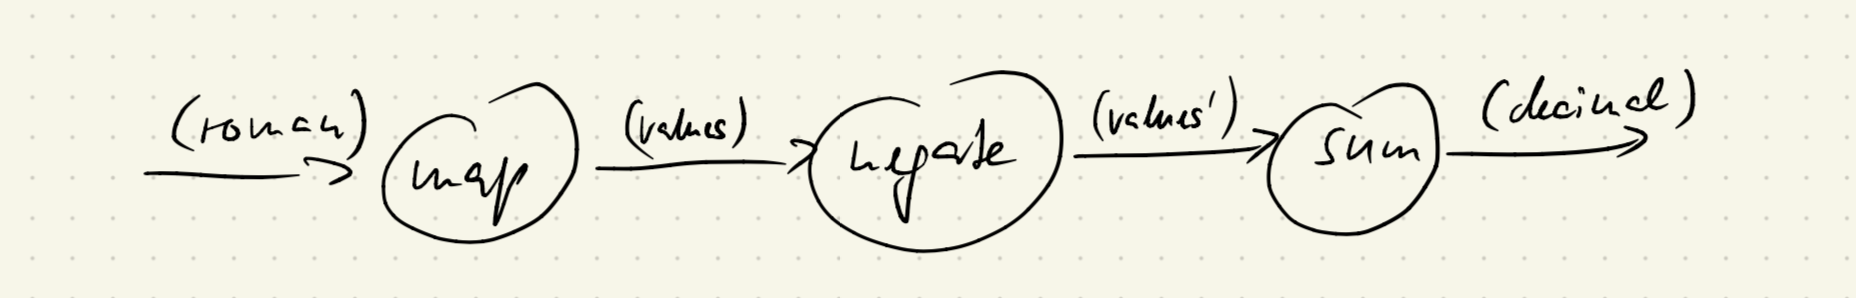 (roman) map (values) negate (values') sum (decimal)